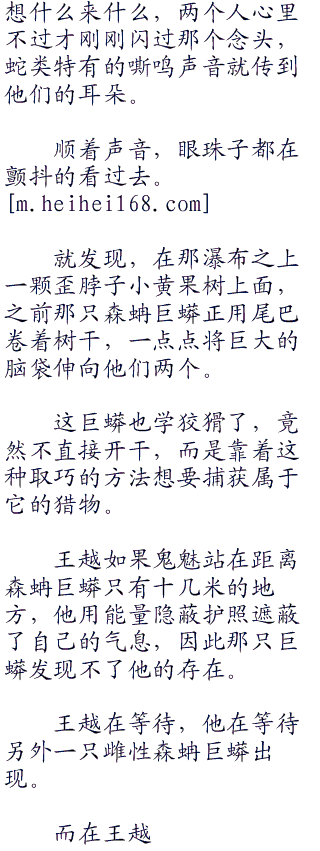 想什么来什么，两个人心里
不过才刚刚闪过那个念头，
蛇类特有的嘶鸣声音就传到
他们的耳朵。
顺着声音，眼珠子都在
颤抖的看过去。
[m.heihei168.com]
就发现，在那瀑布之上
一颗歪脖子小黄果树上面，
之前那只森蚺巨蟒正用尾巴
卷着树干，一点点将巨大的
脑袋伸向他们两个。
这巨蟒也学狡猾了，竟
然不直接开干，而是靠着这
种取巧的方法想要捕获属于
它的猎物。
王越如果鬼魅站在距离
森蚺巨蟒只有十几米的地
方，他用能量隐蔽护照遮蔽
了自己的气息，因此那只巨
蟒发现不了他的存在。
王越在等待，他在等待
另外一只雌性森蚺巨蟒出
现。
而在王越